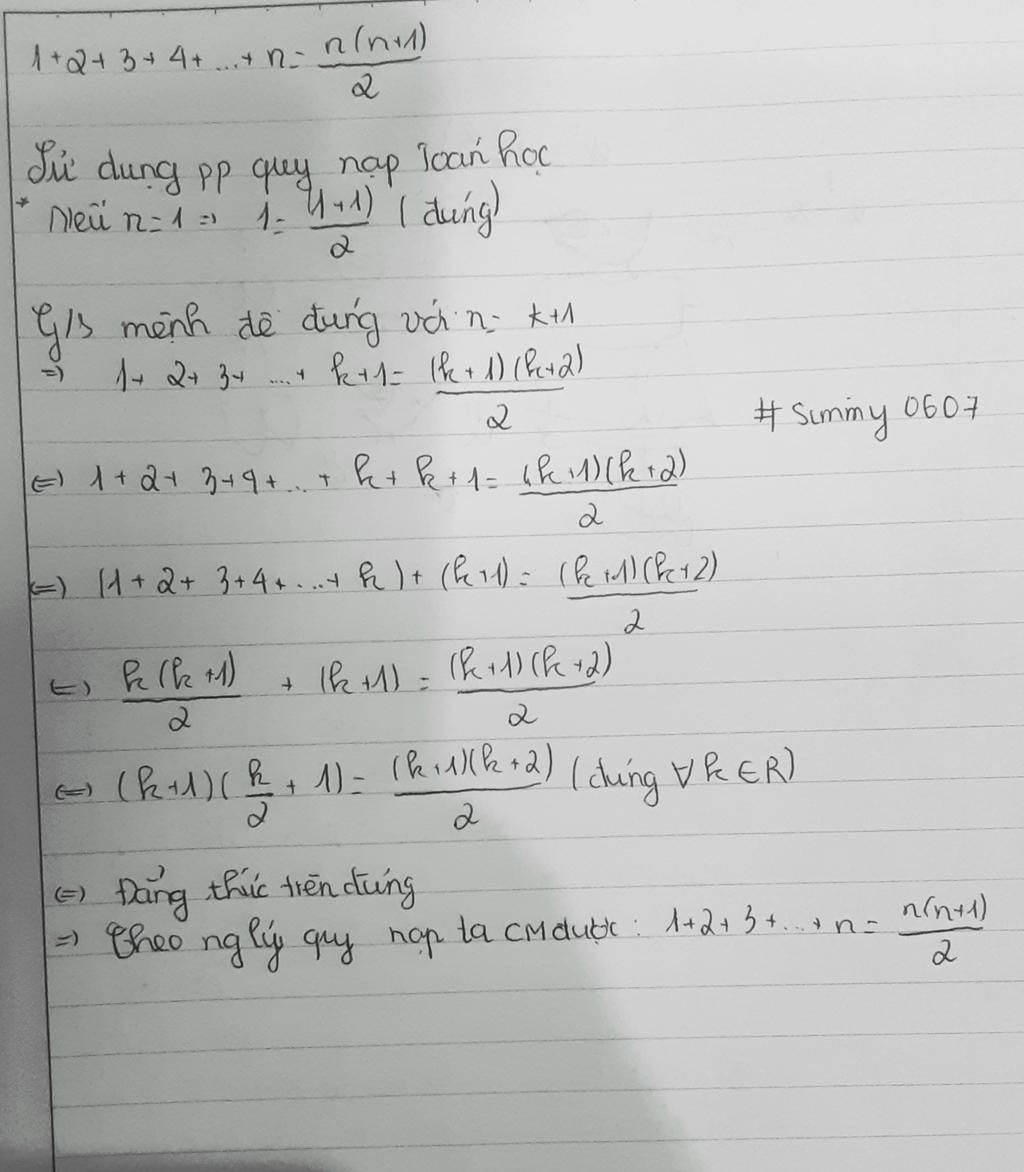 1+2+3+4+...+n = n(n+1)/2
Sử dụng pp quy nạp Toán học
* Nếu n=1 => 1= 1(1+1)/2 (đúng)
G/s mệnh đề đúng với n= k+1
=> 1+ 2+ 3+ ....+ k+1= (k+1)(k+2)/2
# Summy 0607
<=> 1+2+ 3+4+...+ k+ k+1= (k+1)(k+2)/2
<=> (1+2+ 3+4+...+ k)+ (k+1)= (k+1)(k+2)/2
<=> k(k+1)/2 + (k+1) = (k+1)(k+2)/2
<=> (k+1)(k/2 + 1)= (k+1)(k+2)/2 (đúng ∀k∈R)
<=> Đẳng thức trên đúng
=> Theo ng lý quy nạp ta CM được: 1+2+3+...+n = n(n+1)/2